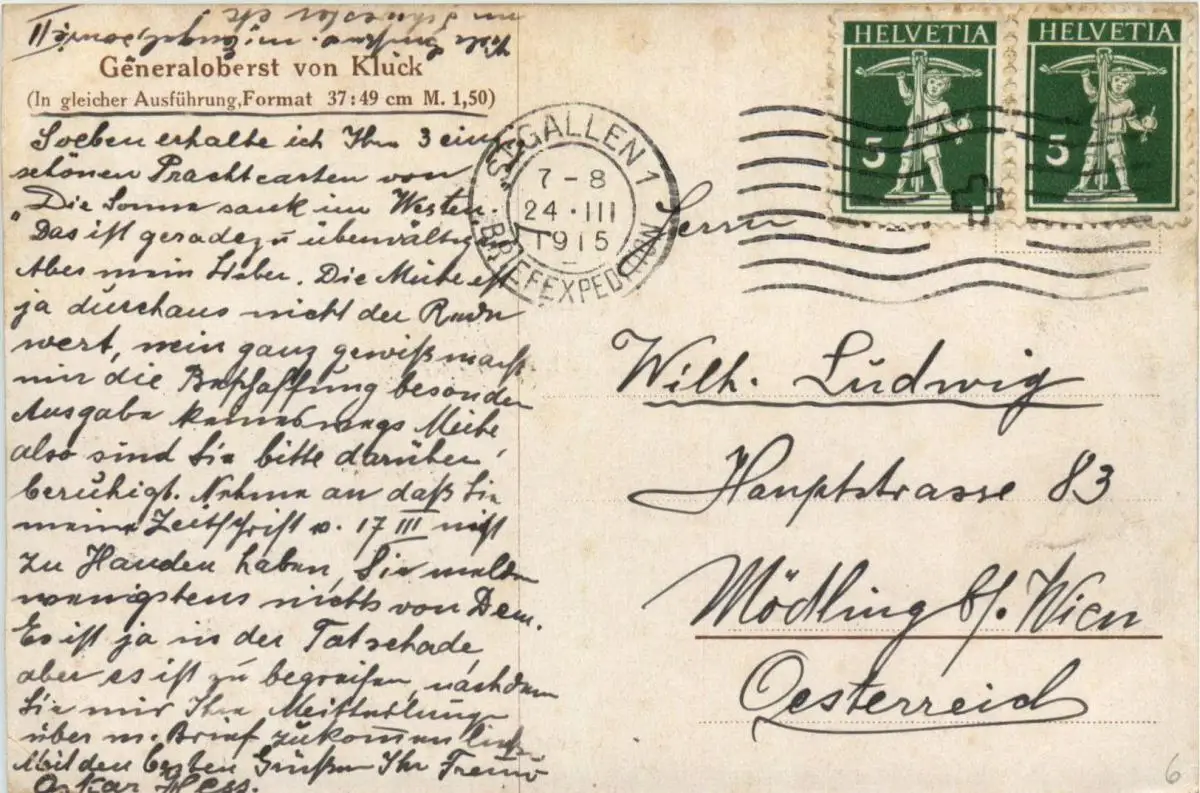 Generaloberst von Kluck
(In gleicher Ausführung, Format 37:49 cm M. 1,50)
Soeben erhalte ich Ihre 3 ein
schönen Prachtcarten von
"Die Sonne sank im Westen.
Das ist geradezu überwältigend
Aber mein Lieber. Die Mühe ist
ja durchaus nicht der Rede
wert, nein ganz gewiß macht
mir die Beschaffung besonder
Ausgabe keineswegs Mühe
also sind Sie bitte darüber
beruhigt. Nehme an daß Sie
meine Zeitschrift v. 17 III nicht
zu Handen haben, Sie melden
wenigstens nichts von Dem.
Es ist ja in der Tat schade,
aber es ist zu begreifen, nachdem
Sie mir Ihre
über m. Brief zukommen ließen
Mit den besten Grüßen Ihr Freund
Oskar Hess.
ST. GALLEN 1
7-8
24.III
1915
BRIEFEXPEDITION
HELVETIA
5
HELVETIA
5
Herrn
Wilh. Ludwig
Hauptstrasse 83
Mödling b/. Wien
Oesterreich
6